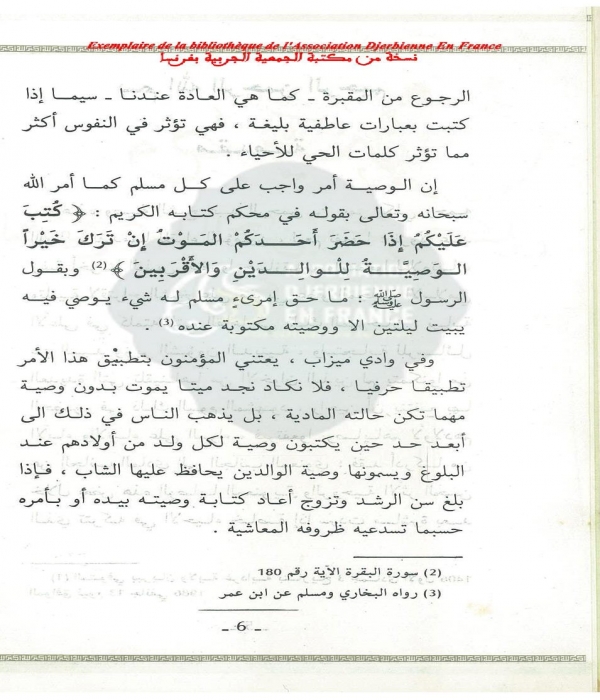 Exemplaire de la bibliothèque de l'Association Djerbienne En France
نسخة من مكتبة الجمعية الجربية بفرنسا
الرجوع من المقبرة ـ كما هي العادة عندنا ـ سيما إذا
كتبت بعبارات عاطفية بليغة ، فهي تؤثر في النفوس أكثر
مما تؤثر كلمات الحي للأحياء .
إن الوصية أمر واجب على كل مسلم كما أمر الله
سبحانه وتعالى بقوله في محكم كتابه الكريم : ﴿ كُتِبَ
عَلَيْكُمْ إِذَا حَضَرَ أَحَدَكُمْ المَوْتُ إِنْ تَرَكَ خَيْراً
الوَصِيَّةُ لِلْوَالِدَيْنِ وَالأَقْرَبِينَ ﴾ (2) وبقول
الرسول ﷺ : ما حق إمرىء مسلم له شيء يوصي فيه
يبيت ليلتين الا ووصيته مكتوبة عنده (3) .
وفي وادي ميزاب ، يعتني المؤمنون بتطبيق هذا الأمر
تطبيقا حرفيا ، فلا نكاد نجد ميتا يموت بدون وصية
مهما تكن حالته المادية ، بل يذهب الناس في ذلك الى
أبعد حد حين يكتبون وصية لكل ولد من أولادهم عند
البلوغ ويسمونها وصية الوالدين يحافظ عليها الشاب ، فإذا
بلغ سن الرشد وتزوج أعاد كتابة وصيته بيده أو بأمره
حسبما تسدعيه ظروفه المعاشية .
(2) سورة البقرة الآية رقم 180
(3) رواه البخاري ومسلم عن ابن عمر
- 6 -
DJERBIENNE
EN FRANCE